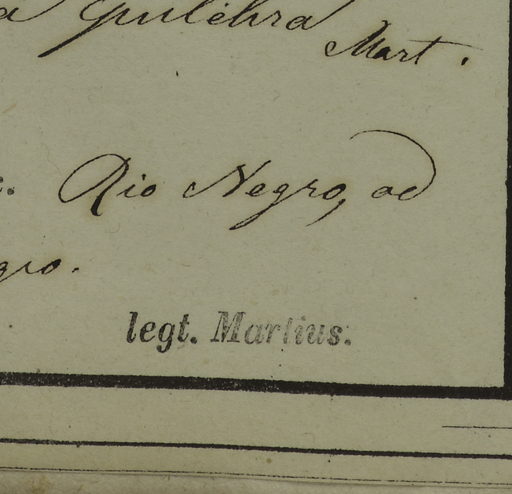 pulchra
Mart.
Rio Negro, ad
gro.
legt. Martius.